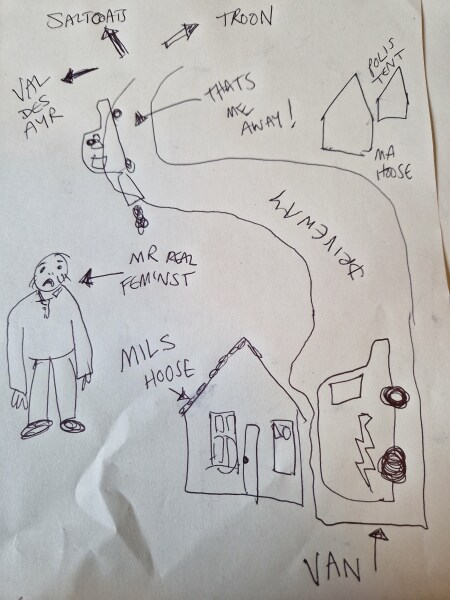 SALTCOATS
TROON
VAL
DES
AYR
THATS
ME
AWAY!
POLIS
TENT
MA
HOOSE
DRIVEWAY
MR REAL
FEMINST
MILS
HOOSE
VAN